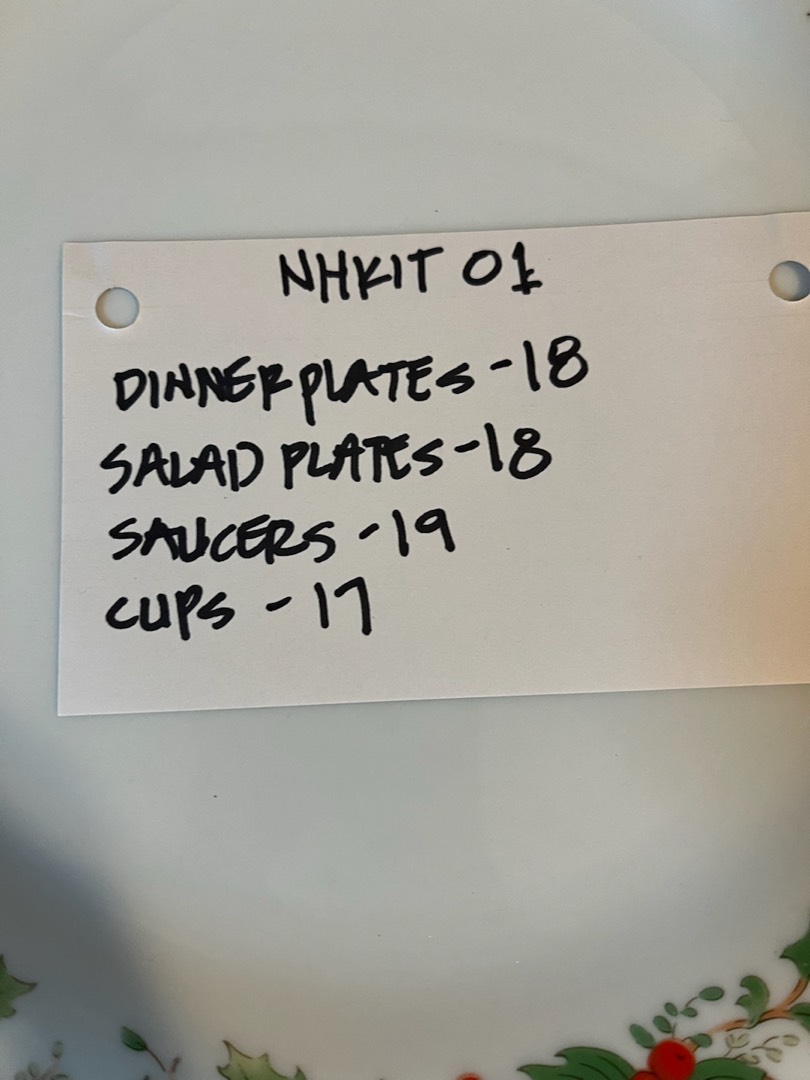 NHKIT 01
DINNER PLATES - 18
SALAD PLATES - 18
SAUCERS - 19
CUPS - 17